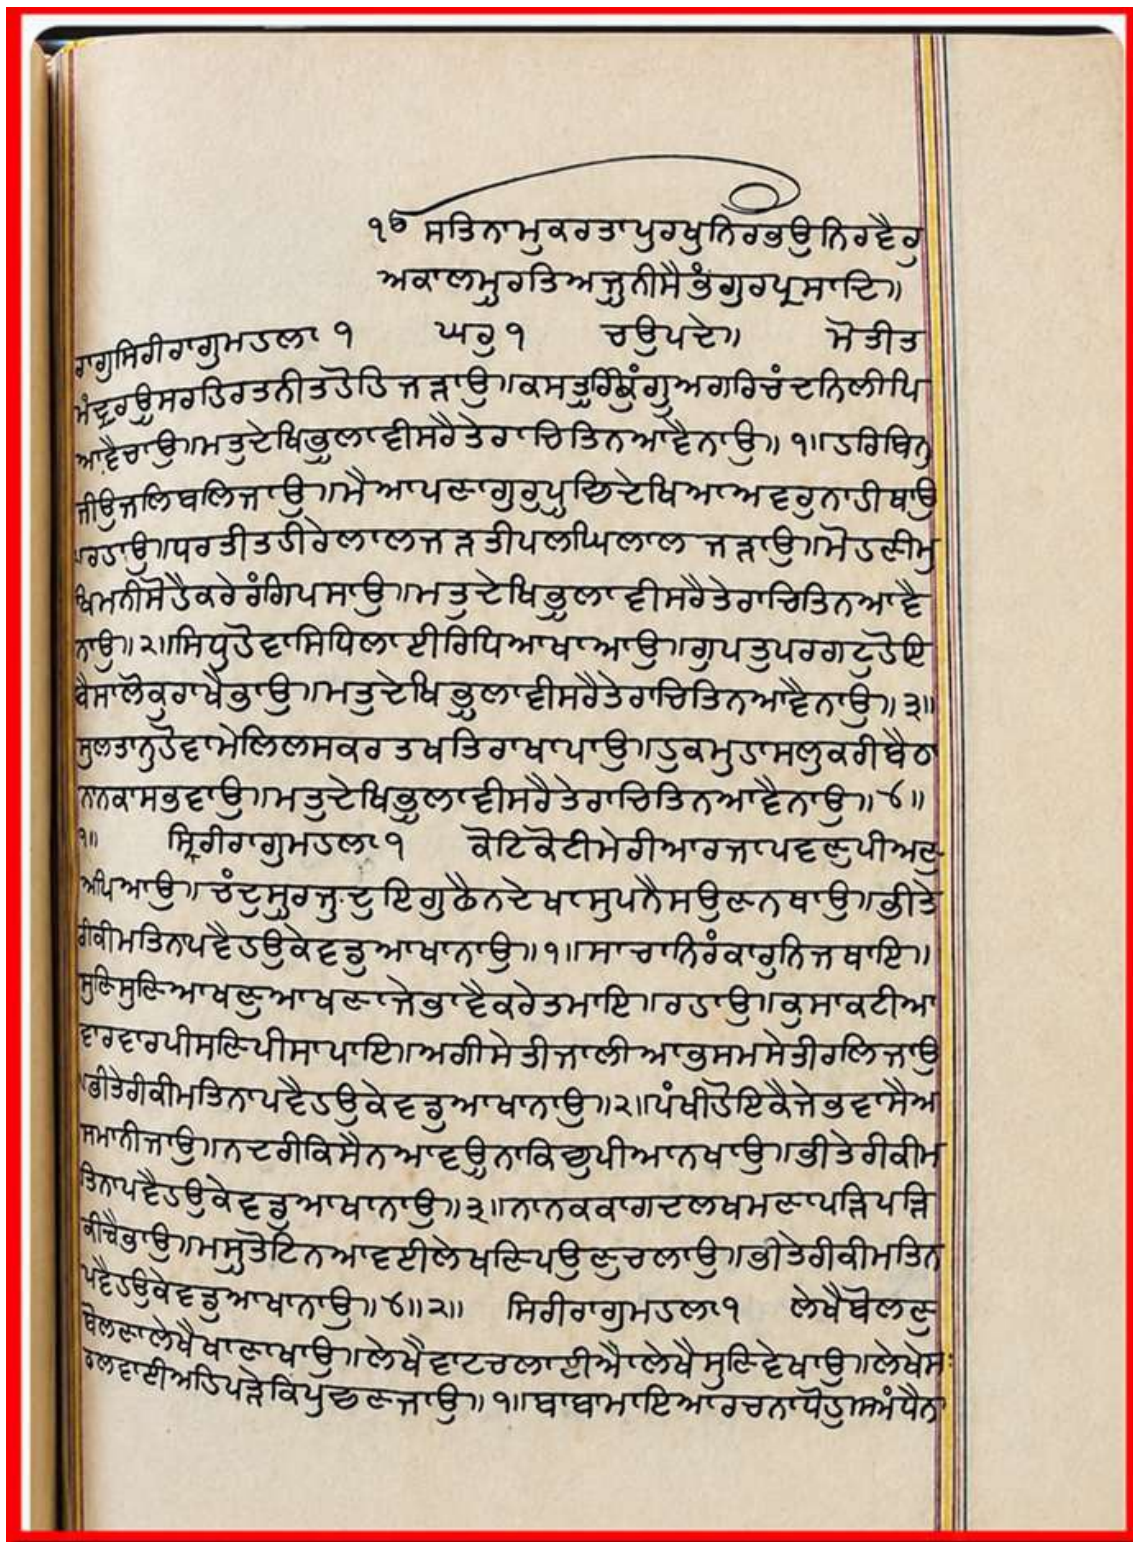 ੴ ਸਤਿਨਾਮੁਕਰਤਾਪੁਰਖੁਨਿਰਭਉਨਿਰਵੈਰੁ
ਅਕਾਲਮੂਰਤਿਅਜੂਨੀਸੈਭੰਗੁਰਪ੍ਰਸਾਦਿ॥
ਰਾਗੁਸਿਰੀਰਾਗੁਮਹਲਾ ੧ ਘਰੁ ੧ ਚਉਪਦੇ॥ ਮੋਤੀਤ
ਮੰਦਰਊਸਰਹਿਰਤਨੀਤਹੋਹਿਜੜਾਉ॥ਕਸਤੂਰਿਕੁੰਗੂਅਗਰਿਚੰਦਨਿਲੀਪਿ
ਆਵੈਚਾਉ॥ਮਤੁਦੇਖਿਭੂਲਾਵੀਸਰੈਤੇਰਾਚਿਤਿਨਆਵੈਨਾਉ॥੧॥ਹਰਿਬਿਨੁ
ਜੀਉਜਲਿਬਲਿਜਾਉ॥ਮੈਆਪਣਾਗੁਰੁਪੂਛਿਦੇਖਿਆਅਵਰੁਨਾਹੀਥਾਉ
ਰਹਾਉ॥ਧਰਤੀਤਹੀਰੇਲਾਲਜੜਤੀਪਲਘਿਲਾਲ ਜੜਾਉ॥ਮੋਹਣੀਮੁ
ਖਿਮਨੀਸੋਹੈਕਰੇਰੰਗਿਪਸਾਉ॥ਮਤੁਦੇਖਿਭੂਲਾਵੀਸਰੈਤੇਰਾਚਿਤਿਨਆਵੈ
ਨਾਉ॥੨॥ਸਿਧੁਹੋਵਾਸਿਧਿਲਾਈਰਿਧਿਆਖਾਆਉ॥ਗੁਪਤੁਪਰਗਟੁਹੋਇ
ਬੈਸਾਲੋਕੁਰਾਖੈਭਾਉ॥ਮਤੁਦੇਖਿਭੂਲਾਵੀਸਰੈਤੇਰਾਚਿਤਿਨਆਵੈਨਾਉ॥੩॥
ਸੁਲਤਾਨੁਹੋਵਾਮੇਲਿਲਸਕਰਤਖਤਿਰਾਖਾਪਾਉ॥ਹੁਕਮੁਹਾਸਲੁਕਰੀਬੈਠਾ
ਨਾਨਕਾਸਭਵਾਉ॥ਮਤੁਦੇਖਿਭੂਲਾਵੀਸਰੈਤੇਰਾਚਿਤਿਨਆਵੈਨਾਉ॥੪॥
੧॥ ਸ੍ਰਿਰੀਰਾਗੁਮਹਲਾ ੧ ਕੋਟਿਕੋਟੀਮੇਰੀਆਰਜਾਪਵਣੁਪੀਅਣੁ
ਅਪਿਆਉ॥ ਚੰਦੁਸੂਰਜੁਦੁਇਗੁਫੈਨਦੇਖਾਸੁਪਨੈਸਉਣਨਥਾਉ॥ਭੀਤੇ
ਰੀਕੀਮਤਿਨਪਵੈਹਉਕੇਵਡੁਆਖਾਨਾਉ॥੧॥ਸਾਚਾਨਿਰੰਕਾਰੁਨਿਜਥਾਇ॥
ਸੁਣਿਸੁਣਿਆਖਣੁਆਖਣਾਜੇਭਾਵੈਕਰੇਤਮਾਇ॥ਰਹਾਉ॥ਕੁਸਾਕਟੀਆ
ਵਾਰਵਾਰਪੀਸਣਿਪੀਸਾਪਾਇ॥ਅਗੀਸੇਤੀਜਾਲੀਆਭਸਮਸੇਤੀਰਲਿਜਾਉ
ਭੀਤੇਰੀਕੀਮਤਿਨਾਪਵੈਹਉਕੇਵਡੁਆਖਾਨਾਉ॥੨॥ਪੰਖੀਹੋਇਕੈਜੇਭਵਾਸੈਅ
ਸਮਾਨੀਜਾਉ॥ਨਦਰੀਕਿਸੈਨਆਵਊਨਾਕਿਛੁਪੀਆਨਖਾਉ॥ਭੀਤੇਰੀਕੀਮ
ਤਿਨਾਪਵੈਹਉਕੇਵਡੁਆਖਾਨਾਉ॥੩॥ਨਾਨਕਕਾਗਦਲਖਮਣਾਪੜਿਪੜਿ
ਕੀਚੈਭਾਉ॥ਮਸੂਤੋਟਿਨਆਵਈਲੇਖਣਿਪਉਣੁਚਲਾਉ॥ਭੀਤੇਰੀਕੀਮਤਿਨ
ਪਵੈਹਉਕੇਵਡੁਆਖਾਨਾਉ॥੪॥੨॥ ਸਿਰੀਰਾਗੁਮਹਲਾ ੧ ਲੇਖੈਬੋਲਣੁ
ਬੋਲਣਾਲੇਖੈਖਾਣਾਖਾਉ॥ਲੇਖੈਵਾਟਚਲਾਈਐਲੇਖੈਸੁਣਿਵੇਖਾਉ॥ਲੇਖੇਸਾ
ਹਲਵਾਈਅਹਿਪੜੇਕਿਪੁਛਣਜਾਉ॥੧॥ਬਾਬਾਮਾਇਆਰਚਨਾਧੋਹੁ॥ਅੰਧੈਨਾ